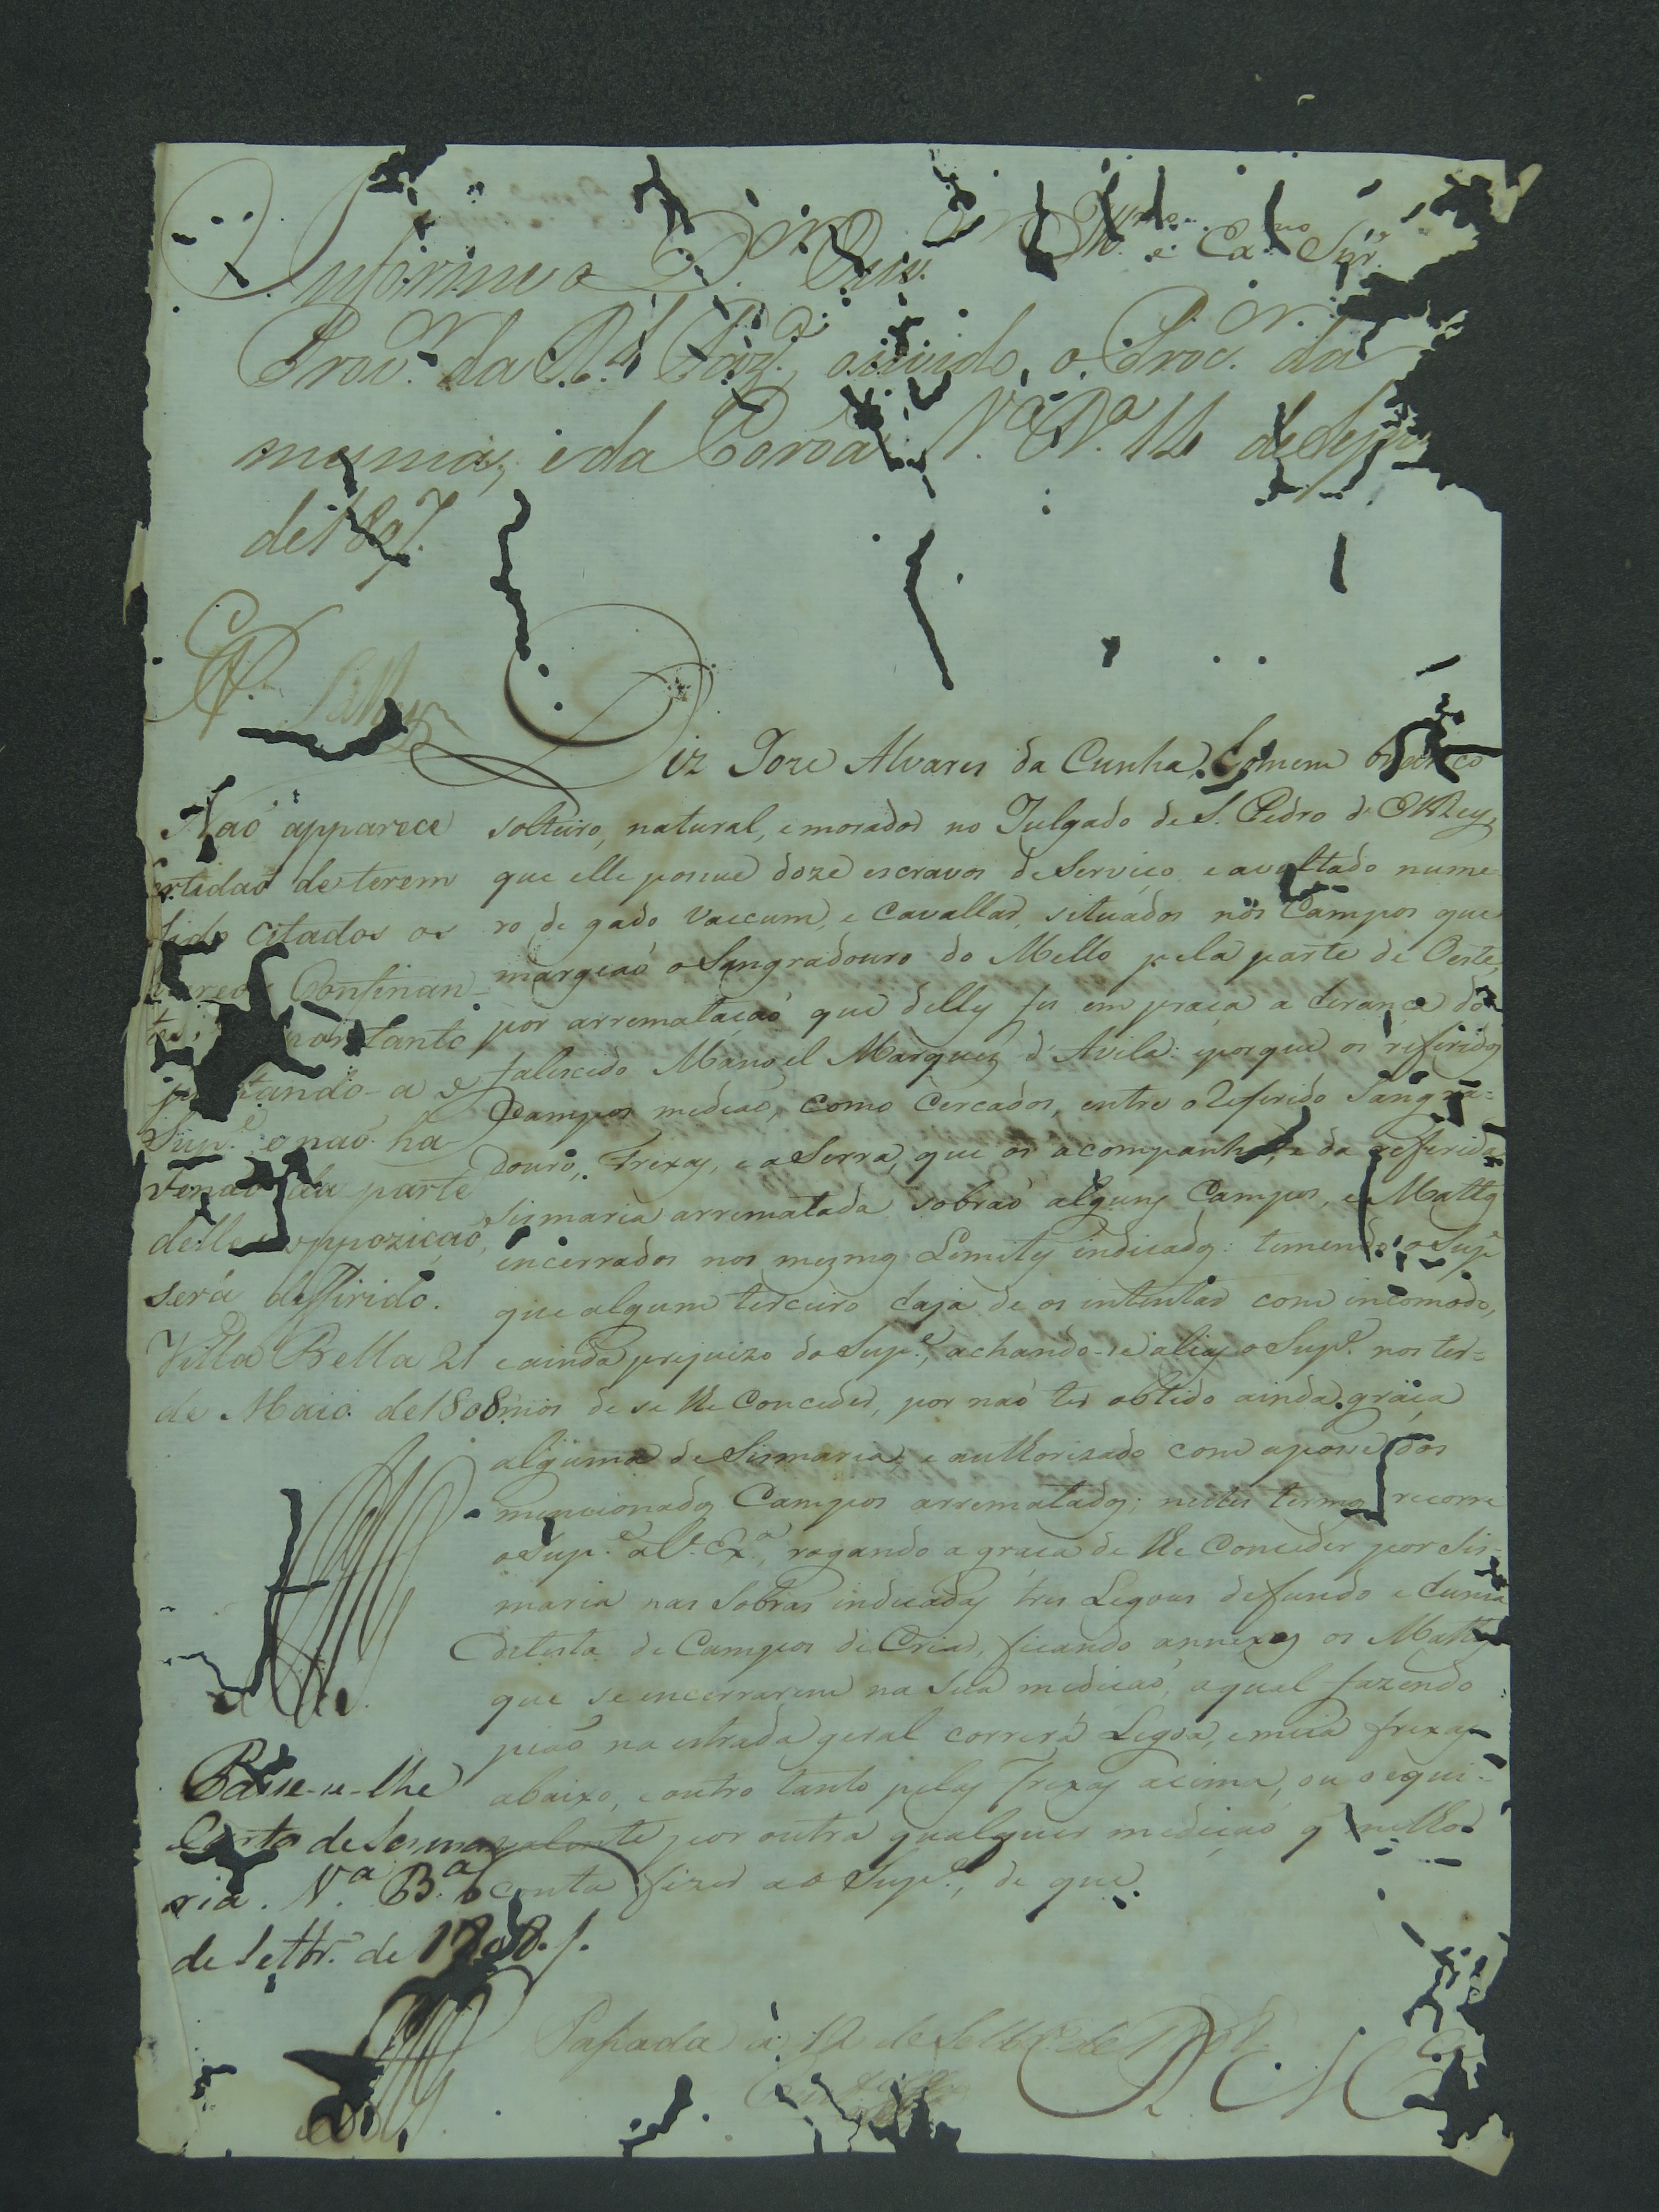 Informe o D.or Juiz
Ill.mo e Ex.mo Snr.
Proc.or da R.l Faz.da, ouvido, o Proc.or da
mesma, e da Coroa. V.a B.a 14 de
de 1807.
Diz Joze Alvares da Cunha, homem branco
solteiro, natural, e morador no Julgado de S. Pedro d' ElRey,
que elle possue doze escravos de Serviço, e avultado nume
ro de gado Vaccum, e Cavallar, situados nos Campos que
margeaõ o Sangradouro do Mello pela parte de Oeste,
por arremataçaõ que delles fes em praça a erança do
falescido Manoel Marques d' Avila: e porque os referidos
Campos mediaõ, como cercados, entre o referido Sangra=
douro, Frexas, e a Serra, que os acompanha, e da referida
sismaria arrematada sobraõ alguns Campos, e Mattos
encerrados nos mezmos Lemites indicados: temendo o Sup.e
que algum terceiro haja de os intentar com incomodo,
e ainda prejuizo do Sup.e, achando-se alias o Sup.e nos ter=
mos de se lhe Conceder, por naõ ter obtido ainda graça
alguma de Sismaria, e authorizado com a posse dos
mencionados Campos arrematados; nestes termos recorre
o Sup.e a V. Ex.a, rogando a graça de lhe Conceder por Sis-
maria nas Sobras indicadas tres Legoas de fundo e huma
de testa de Campos de Criar, ficando annexos os Mattos
que se encerrarem na sua mediçaõ, a qual fazendo
piaõ na estrada geral correrá Legoa, e meia frexas
abaixo, e outro tanto pelas Frexas acima, ou o equi-
valente por outra qualquer mediçaõ q melhor
conta fizer ao Sup.e, de que
Naõ apparece
Certidaõ de terem
sido citados os
Ereos Confinan-
tes; portanto
juntando-a o
Sup.e e naõ ha
vendo da parte
delles oppoziçaõ,
será defferido.
Villa Bella 21
de Maio de 1808
Passe-se-lhe
Carta de Sesma
ria. V.a B.a
de Settbr.o de 1808.
Passada á 12 de Settbr.o de
R M